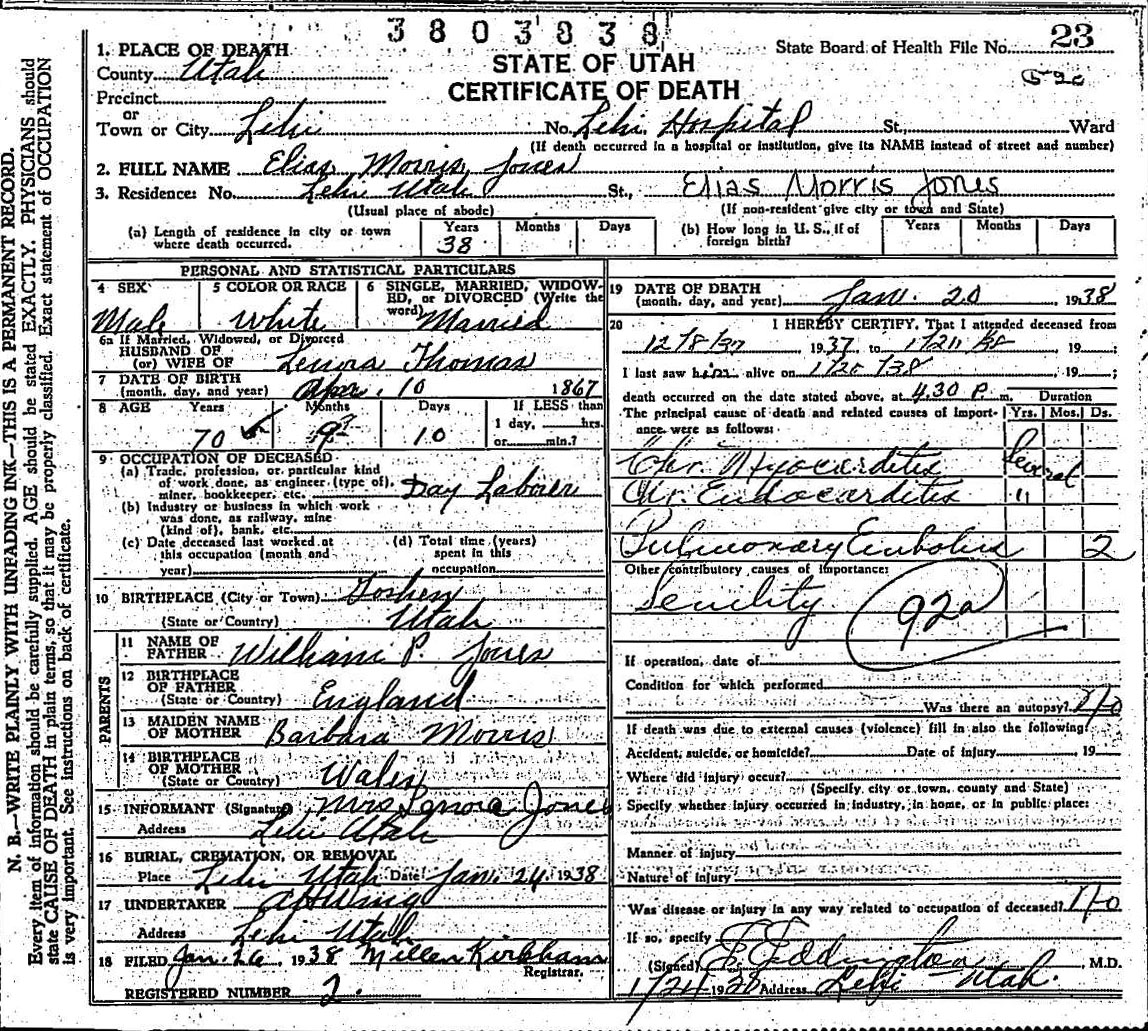 3803838
State Board of Health File No. 23
STATE OF UTAH
CERTIFICATE OF DEATH
1. PLACE OF DEATH
County Utah
Precinct
or
Town or City Lehi No. Lehi Hospital St., Ward
(If death occurred in a hospital or institution, give its NAME instead of street and number)
2. FULL NAME Elias Morris Jones
3. Residence: No. Lehi Utah St., Elias Morris Jones
(Usual place of abode) (If non-resident give city or town and State)
(a) Length of residence in city or town where death occurred. Years 38 Months Days (b) How long in U. S., if of foreign birth? Years Months Days
PERSONAL AND STATISTICAL PARTICULARS
4 SEX Male
5 COLOR OR RACE White
6 SINGLE, MARRIED, WIDOWED, or DIVORCED (Write the word) Married
6a If Married, Widowed, or Divorced
HUSBAND OF
(or) WIFE OF Lenora Thomas
7 DATE OF BIRTH
(month, day, and year) Apr. 10 1867
8 AGE Years 70 Months 9 Days 10 If LESS than 1 day, hrs. or min.?
9 OCCUPATION OF DECEASED
(a) Trade, profession, or particular kind
of work done, as engineer (type of),
miner, bookkeeper, etc. Day Laborer
(b) Industry or business in which work
was done, as railway, mine
(kind of), bank, etc.
(c) Date deceased last worked at
this occupation (month and
year)
(d) Total time (years)
spent in this
occupation
10 BIRTHPLACE (City or Town) Goshen
(State or Country) Utah
PARENTS
11 NAME OF
FATHER William P. Jones
12 BIRTHPLACE
OF FATHER
(State or Country) England
13 MAIDEN NAME
OF MOTHER Barbara Morris
14 BIRTHPLACE
OF MOTHER
(State or Country) Wales
15 INFORMANT (Signature) Mrs Lenora Jones
Address Lehi Utah
16 BURIAL, CREMATION, OR REMOVAL
Place Lehi Utah Date Jan. 24 1938
17 UNDERTAKER A H Wing
Address Lehi Utah
18 FILED Jan. 26, 1938 Millen Kirkham
Registrar.
REGISTERED NUMBER 2.
19 DATE OF DEATH
(month, day, and year) Jan. 20, 1938
20 I HEREBY CERTIFY, That I attended deceased from
12/8/37, 1937 to 19 ;
I last saw him alive on 1/20/38, 19 ;
death occurred on the date stated above, at 4.30 P. m. Duration
The principal cause of death and related causes of importance were as follows: Yrs. Mos. Ds.
Chr. Myocarditis Several
Chr. Endocarditis "
Pulmonary Embolus 2
Other contributory causes of importance:
Senility 92a
If operation, date of
Condition for which performed
Was there an autopsy? No
If death was due to external causes (violence) fill in also the following:
Accident, suicide, or homicide? Date of injury 19
Where did injury occur?
(Specify city or town, county and State)
Specify whether injury occurred in industry, in home, or in public place:
Manner of injury
Nature of injury
Was disease or injury in any way related to occupation of deceased? No
If so, specify
(Signed) Eddington, M.D.
Address Lehi Utah.
N. B.—WRITE PLAINLY WITH UNFADING INK—THIS IS A PERMANENT RECORD.
Every item of information should be carefully supplied. AGE should be stated EXACTLY. PHYSICIANS should
state CAUSE OF DEATH in plain terms, so that it may be properly classified. Exact statement of OCCUPATION
is very important. See instructions on back of certificate.